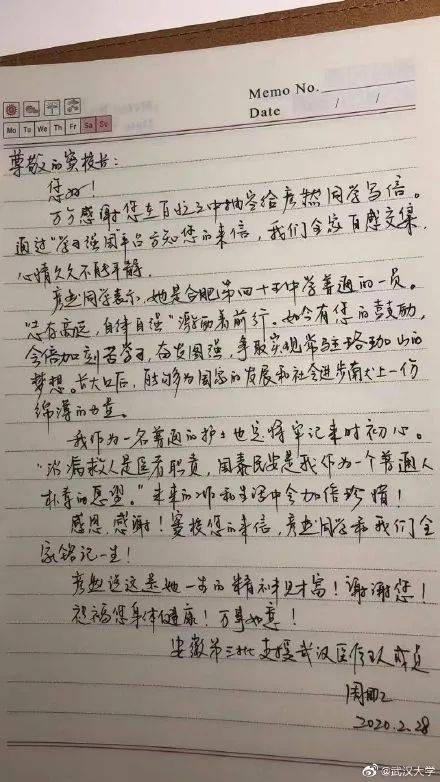 Memo No.
Date / /
Mo Tu We Th Fr Sa Su
尊敬的窦校长：
您好！
万分感谢您在百忙之中抽空给彦然同学写信。
通过"学习强国"平台方知您的来信，我们全家百感交集，
心情久久不能平静。
彦然同学表示，她是合肥第四十五中学普通的一员。
"志存高远，自律自强"激励着前行。如今有您的鼓励，
会倍加刻苦学习，奋发图强，争取实现常驻珞珈山的
梦想。长大以后，能够为国家的发展和社会进步献上一份
绵薄的力量。
我作为一名普通的护士也定将牢记来时初心。
"治病救人是医者职责，国泰民安是我作为一个普通人
朴素的愿望。"未来的工作和生活中会加倍珍惜！
感恩，感谢！窦校长您的来信，彦然同学和我们全
家铭记一生！
彦然说这是她一生的精神财富！谢谢您！
祝福您身体健康！万事如意！
安徽第三批支援武汉医疗队成员
2020.2.28
@武汉大学